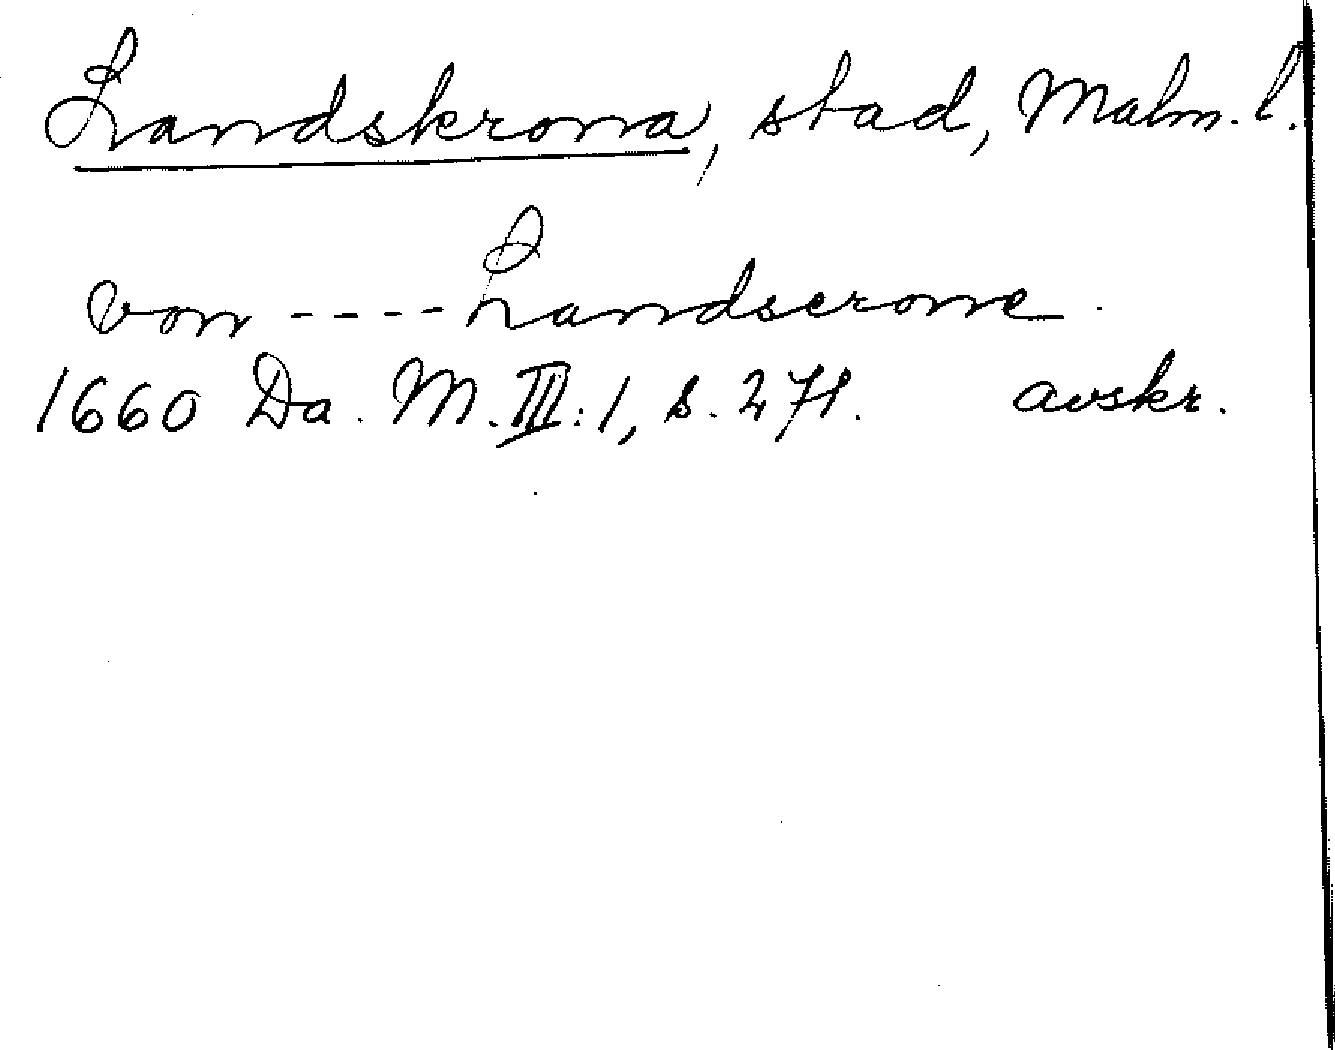 Landskrona, stad, Malm. l.
von ---- Landscrone.
1660 Da. M. III:1, s. 271. avskr.